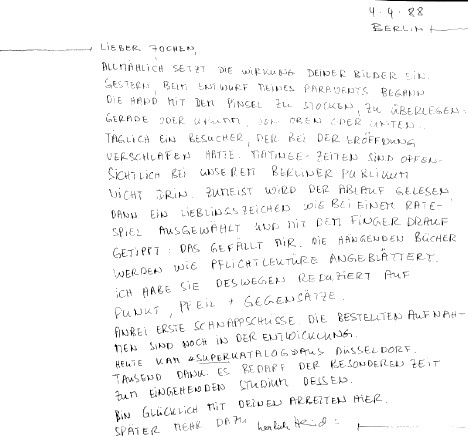 4.4.88
BERLIN
LIEBER JOCHEN,
ALLMÄHLICH SETZT DIE WIRKUNG DEINER BILDER EIN.
GESTERN, BEIM ENTWURF MEINES PARAVENTS BEGANN
DIE HAND MIT DEM PINSEL ZU STOCKEN, ZU ÜBERLEGEN:
GERADE ODER KRUMM, VON OBEN ODER UNTEN.
TÄGLICH EIN BESUCHER, DER BEI DER ERÖFFNUNG
VERSCHLAFEN HATTE. MATINEE-ZEITEN SIND OFFEN-
SICHTLICH BEI UNSEREM BERLINER PUBLIKUM
NICHT DRIN. ZUMEIST WIRD DER ABLAUF GELESEN
DANN EIN LIEBLINGSZEICHEN WIE BEI EINEM RATE-
SPIEL AUSGEWÄHLT UND MIT DEM FINGER DRAUF
GETIPPT: DAS GEFÄLLT MIR. DIE HÄNGENDEN BÜCHER
WERDEN WIE PFLICHTLEKTÜRE ANGEBLÄTTERT.
ICH HABE SIE DESWEGEN REDUZIERT AUF
PUNKT, PFEIL + GEGENSÄTZE.
ANBEI ERSTE SCHNAPPSCHÜSSE. DIE BESTELLTEN AUFNAH-
MEN SIND NOCH IN DER ENTWICKLUNG.
HEUTE KAM »SUPERKATALOG« AUS DÜSSELDORF.
TAUSEND DANK. ES BEDARF DER BESONDEREN ZEIT
ZUM EINGEHENDEN STUDIUM DESSEN.
BIN GLÜCKLICH MIT DEINEN ARBEITEN HIER.
SPÄTER MEHR DAZU